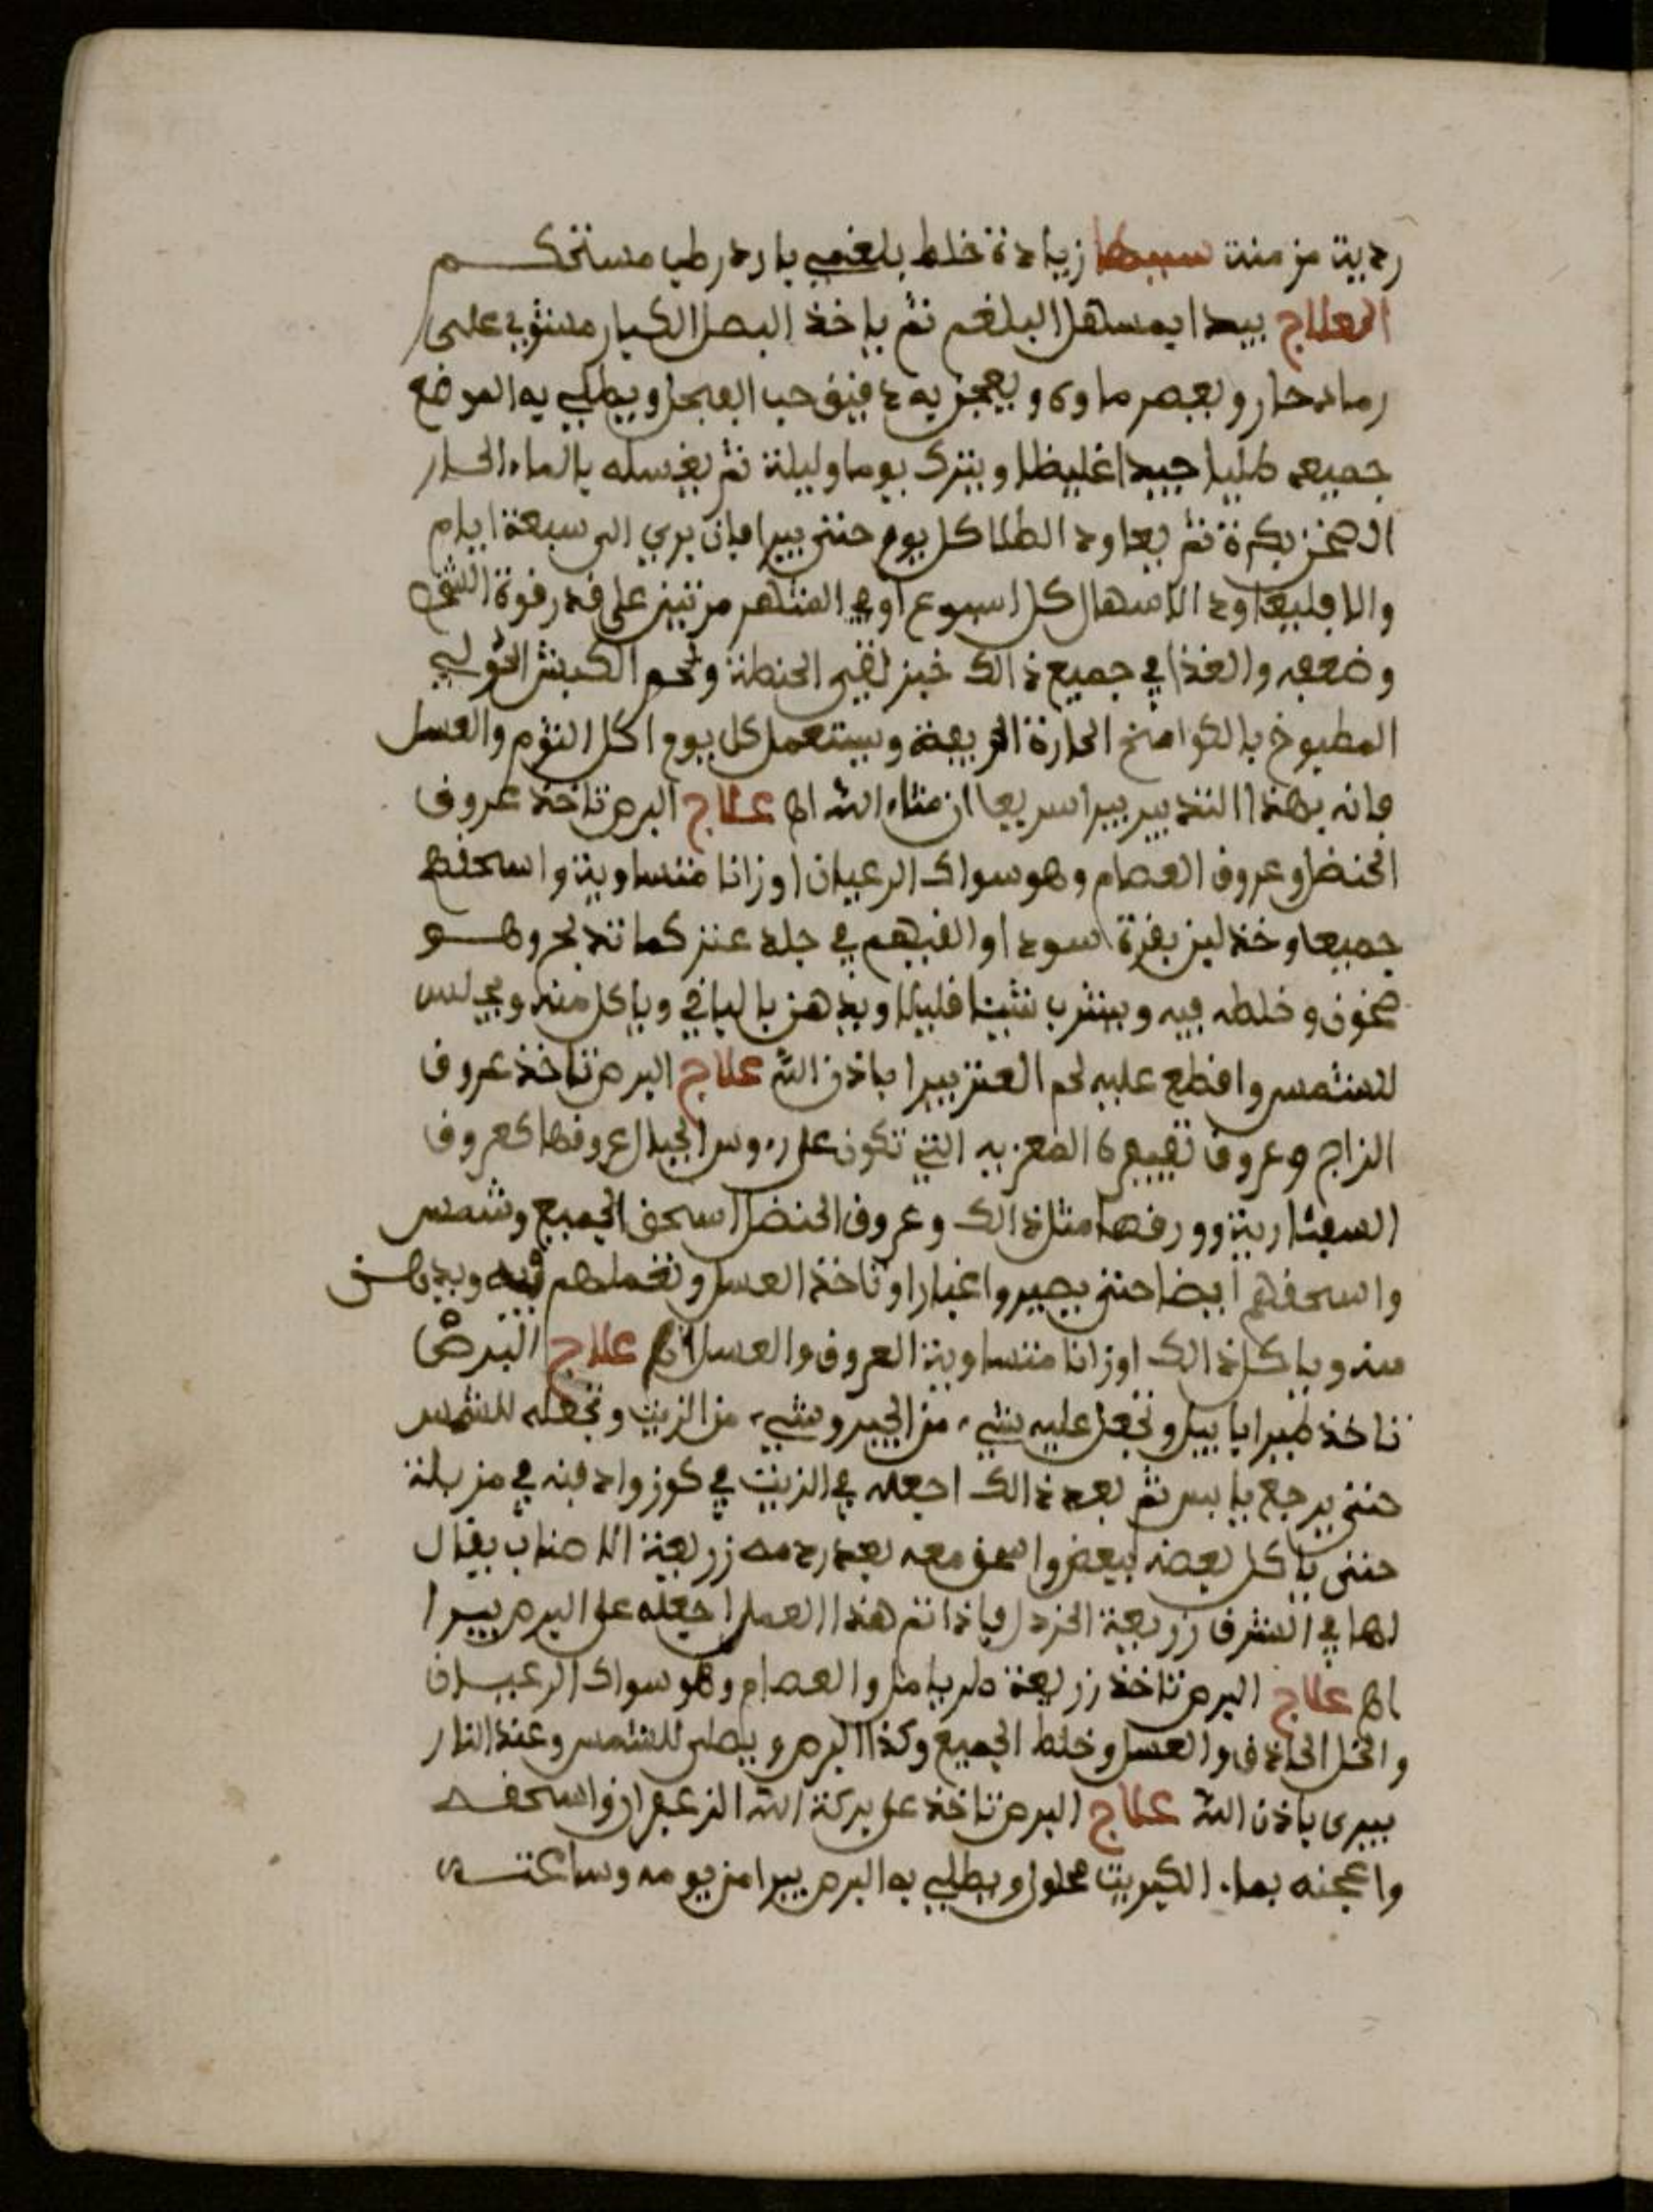 ردية مزمنة سببها زيادة خلط بلغمي بارد رطب مستحكم
العلاج يبدا بمسهل البلغم ثم ياخذ البصل الكبار مشوي على
رماد حار ويعصر ماوه ويعجن به دقيق حب الفجل ويطلي به الموضع
جميعه طليا جيدا غليظا ويترك يوما وليلة ثم يغسله بالماء الحار
السخن بكرة ثم يعاود الطلا كل يوم حتى يبرا فان بري الى سبعة ايام
والا فليعاود الاسهال كل اسبوع او في الشهر مرتين على قدر قوة الشخص
وضعفه والغذا في جميع ذالك خبز نقي الحنطة ولحم الكبش الحولي
المطبوخ بالكوامخ الحارة الحريفة ويستعمل كل يوم اكل الثوم والعسل
فانه بهذا التدبير يبرا سريعا ان شاء الله اه علاج البرص تاخذ عروق
الحنضل وعروق العصام وهو سواك الرعيان اوزانا متساوية واسحقهم
جميعا وخذ لبن بقرة سودا والقيهم في جلد عنز كما تذبح وهو
سخون وخلطه فيه ويشرب شيئا قليلا ويدهن بالباقي وياكل منه ويجلس
للشمس واقطع عليه لحم العنز يبرا باذن الله علاج البرص تاخذ عروق
الزاج وعروق تفيفره المغربيه التي تكون على رءوس الجبال عروقها كعروق
السفنارية وورقها مثل ذالك وعروق الحنضل اسحق الجميع وشمس
واسحقهم ايضا حتى يصيروا غبارا وتاخذ العسل وتخملهم فيه ويدهن
منه وياكل ذالك اوزانا متساوية العروق والعسل اه علاج البرص
تاخذ طير ابابيل وتجعل عليه شيء من الجير وشيء من الزيت وتجعله للشمس
حتى يرجع يابس ثم بعد ذالك اجعله في الزيت في كوز وادفنه في مزبلة
حتى ياكل بعضه ببعض واسحق معه بعد ردمه زريعة الاصناب يقال
لها في الشرق زريعة الخردل فاذا تم هذا العمل اجعله على البرص يبرا
اه علاج البرص تاخذ زريعة والعصام وهو سواك الرعيان
والخل الحاذق والعسل وخلط الجميع وكذا البرص ويطلى للشمس وعند النار
يبرى باذن الله علاج البرص تاخذ على بركة الله الزعفران واسحقه
واعجنه بماء الكبريت محلول ويطلي به البرص يبرا من يومه وساعته